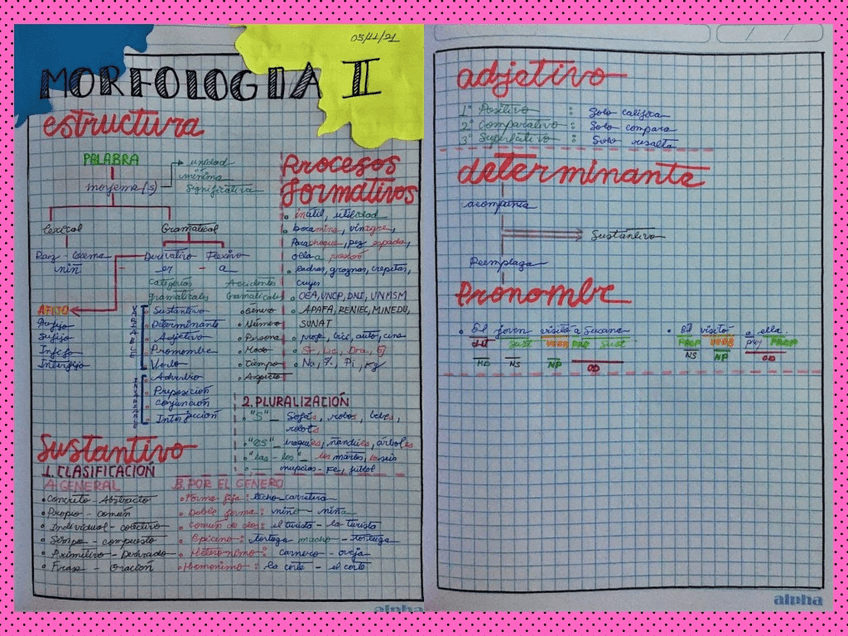 05/11/21
MORFOLOGIA II
estructura
PALABRA
morfema(s)
unidad
mínima
significativa
Lexical
Gramatical
Raíz - Lexema
niñ
Derivativo
Flexivo
er - a
Categorías
gramaticales
Accidentes
Gramaticales
AFIJO
Prefijo
Sufijo
Infijo
Interfijo
Sustantivo
Determinante
Adjetivo
Pronombre
Verbo
Adverbio
Preposición
Conjunción
Interjección
• Género
• Número
• Persona
• Modo
• Tiempo
• Aspecto
Procesos
formativos
• inútil, utilidad
• bocamina, vinagre,
Parachoque, pez espada,
olla a presión
• ladrar, graznar, crepitar,
cuyes
• OEA, UNCP, DNI, UNMSM
• APAFA, RENIEC, MINEDU,
SUNAT
• profe, bici, auto, cine
• Sr., Lic., Dra., Ej.
• Na, 7, Pi, kg
2. PLURALIZACIÓN
• "S" - Sofás, robos, bebés,
robots
• "es" - iraquíes, ñandúes, árboles
• "las - los" - los martes, la
- fez, fútbol
Sustantivo
1. CLASIFICACIÓN
A. GENERAL
• Concreto - Abstracto
• Propio - común
• Individual - colectivo
• Simple - compuesto
• Primitivo - Derivado
• Frase - Oración
B. POR EL GENERO
• Forma fija: techo - carretera
• Doble forma: niño - niña
• Común de dos: el turista - la turista
• Epiceno: tortuga macho - tortuga
• Heterónimo: carnero - oveja
• Homónimo: la corte - el corte
adjetivo
1° Positivo : Solo califica
2° Comparativo : Solo compara
3° Superlativo : Solo resalta
determinante
acompaña
Sustantivo
Reemplaza
Pronombre
• El joven visitó a Susana
Det Sust VERB PREP Sust
MD NS NP OD
• El visitó a ella.
PRON VERB prep PRON
NS NP OD
alpha
alpha